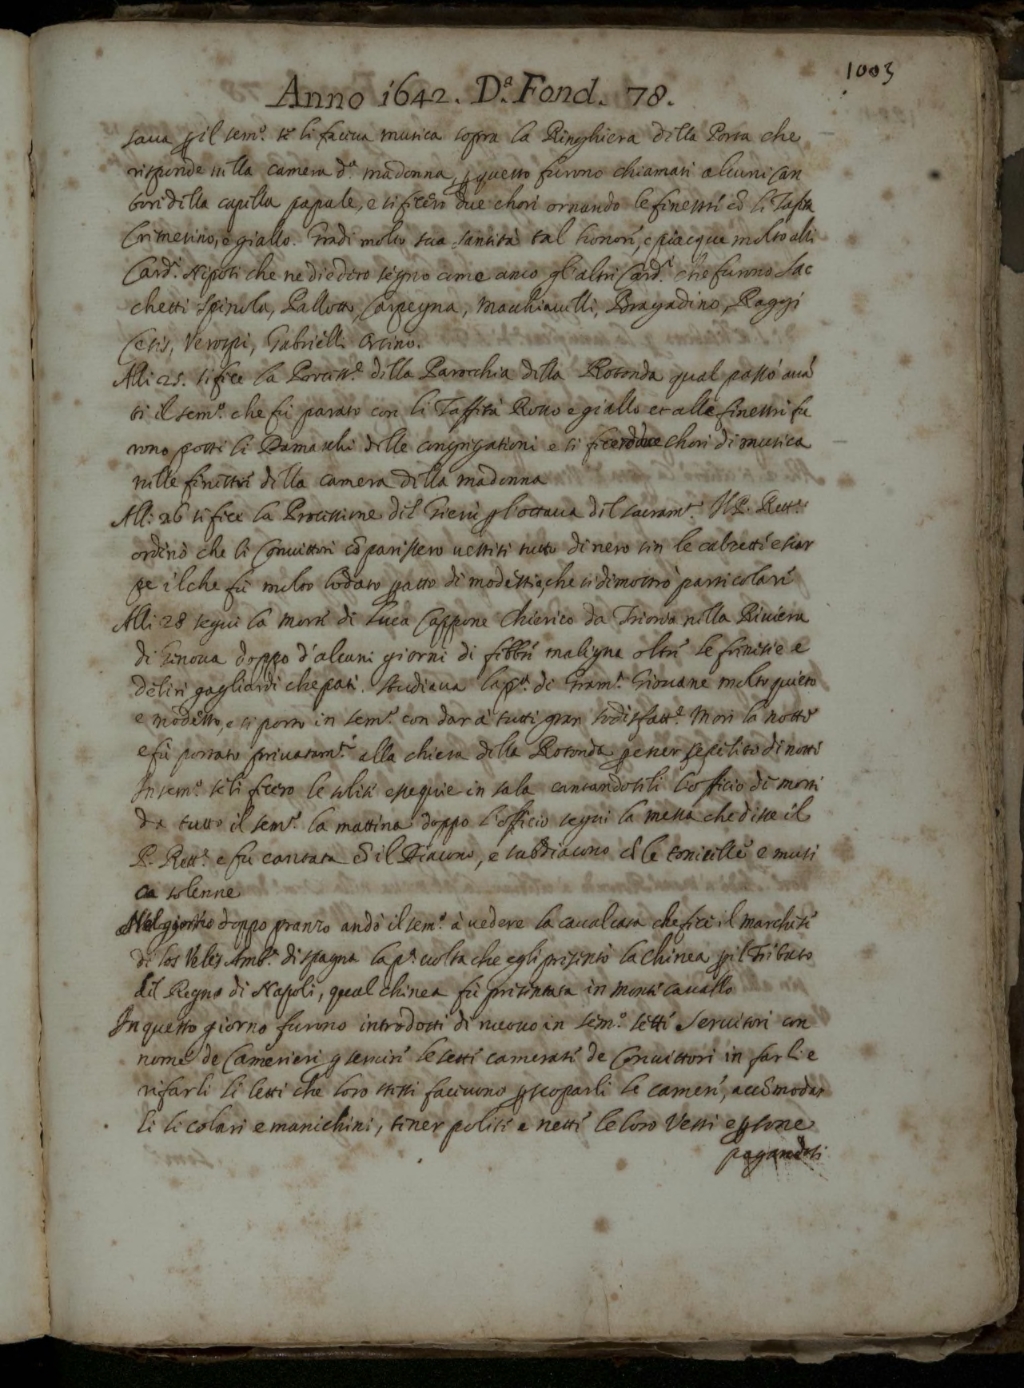 1003
Anno 1642. D.ª Fond. 78.
saua p il sem.º se li faceua musica sopra la Ringhiera della Porta che
risponde nella camera d.ª madonna, p questo furono chiamati alcuni can
tori della capella papale, e si fecero due chori ornando le finestre cõ li Taffetà
Cremesino, e giallo. Gradì molto sua santità tal honore, e piacque molto alli
Card.i Nipoti che ne diedero segno come anco gl'altri Card.i che furono Sac
chetti Spinola, Pallotta, Carpegna, Macchiauelli, Bragadino, Raggi
Cesis, Verospi, Gabrielli Orsino.
Alli 25. si fece la Process.e della Parochia della Rotonda qual passò auã
ti il sem.º che fu parato con li Taffetà Rosso e giallo et alle finestre fu
rono posti li Damaschi delle congregationi e si fecero due Chori di musica
nelle finestre della camera della madonna
Alli 26 si fece la Processione del Giesù p l'ottaua del sacram.to Il P. Rett.re
ordinò che li Conuittori cõparissero uestiti tutto di nero sin le calzette e scar
pe il che fu molto lodato p atto di modestia, che si dimostrò particolare
Alli 28 seguì la morte di Luca Cappone Chierico da Triora nella Riuiera
di Genoua doppo d'alcuni giorni di febbre maligna oltre le frenesie e
deliri gagliardi che patì. Studiaua la p.ª di Gram.ca Giouane molto quieto
e modesto, e si portò in sem.º con dar à tutti gran sodisfatt.e Morì la notte
e fu portato priuatam.te alla chiesa della Rotonda p esser sepelito di notte
In sem.º se li fecero le solite essequie in sala cantandosili l'officio de morti
da tutto il sem.º la mattina doppo l'officio seguì la messa che disse il
P. Rett.re e fu cantata cõ il Diacono, e subdiacono cõ le tonicelle e musi
ca solenne
Nel giorno doppo pranzo andò il sem.º à uedere la caualcata che fece il marchese
di los Veles Amb.re di spagna la p.ª uolta che egli presentò la chinea p il Tributo
del Regno di Napoli, qual chinea fu presentata in monte cauallo
In questo giorno furono introdotti di nuouo in sem.º sette Seruitori con
nome de Camerieri p seruire le sette camerate de Conuittori in farli e
rifarli li letti che loro stessi faceuono p scoparli le camere, accõmodar
li li colari e manichini, tener polite e nette le loro Vesti e p sone
pagandoli